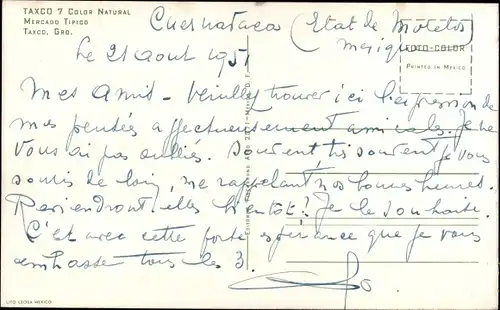 TAXCO 7 COLOR NATURAL
MERCADO TIPICO
TAXCO, GRO.
Cuernavaca (Etat de Morelos)
Mexique
FOTO-COLOR
PRINTED IN MEXICO
Le 21 Aout 1951
Mes Amis - Veuillez trouver ici l'expression de
mes pensées affectueusement amicales. Je ne
vous ai pas oubliés. Souvent, très souvent je vous
souris de loin, me rappelant nos bonnes heures.
Reviendront-elles bientôt? Je le souhaite.
C'est avec cette forte espérance que je vous
embrasse tous les 3.
LITO LEOSA-MEXICO